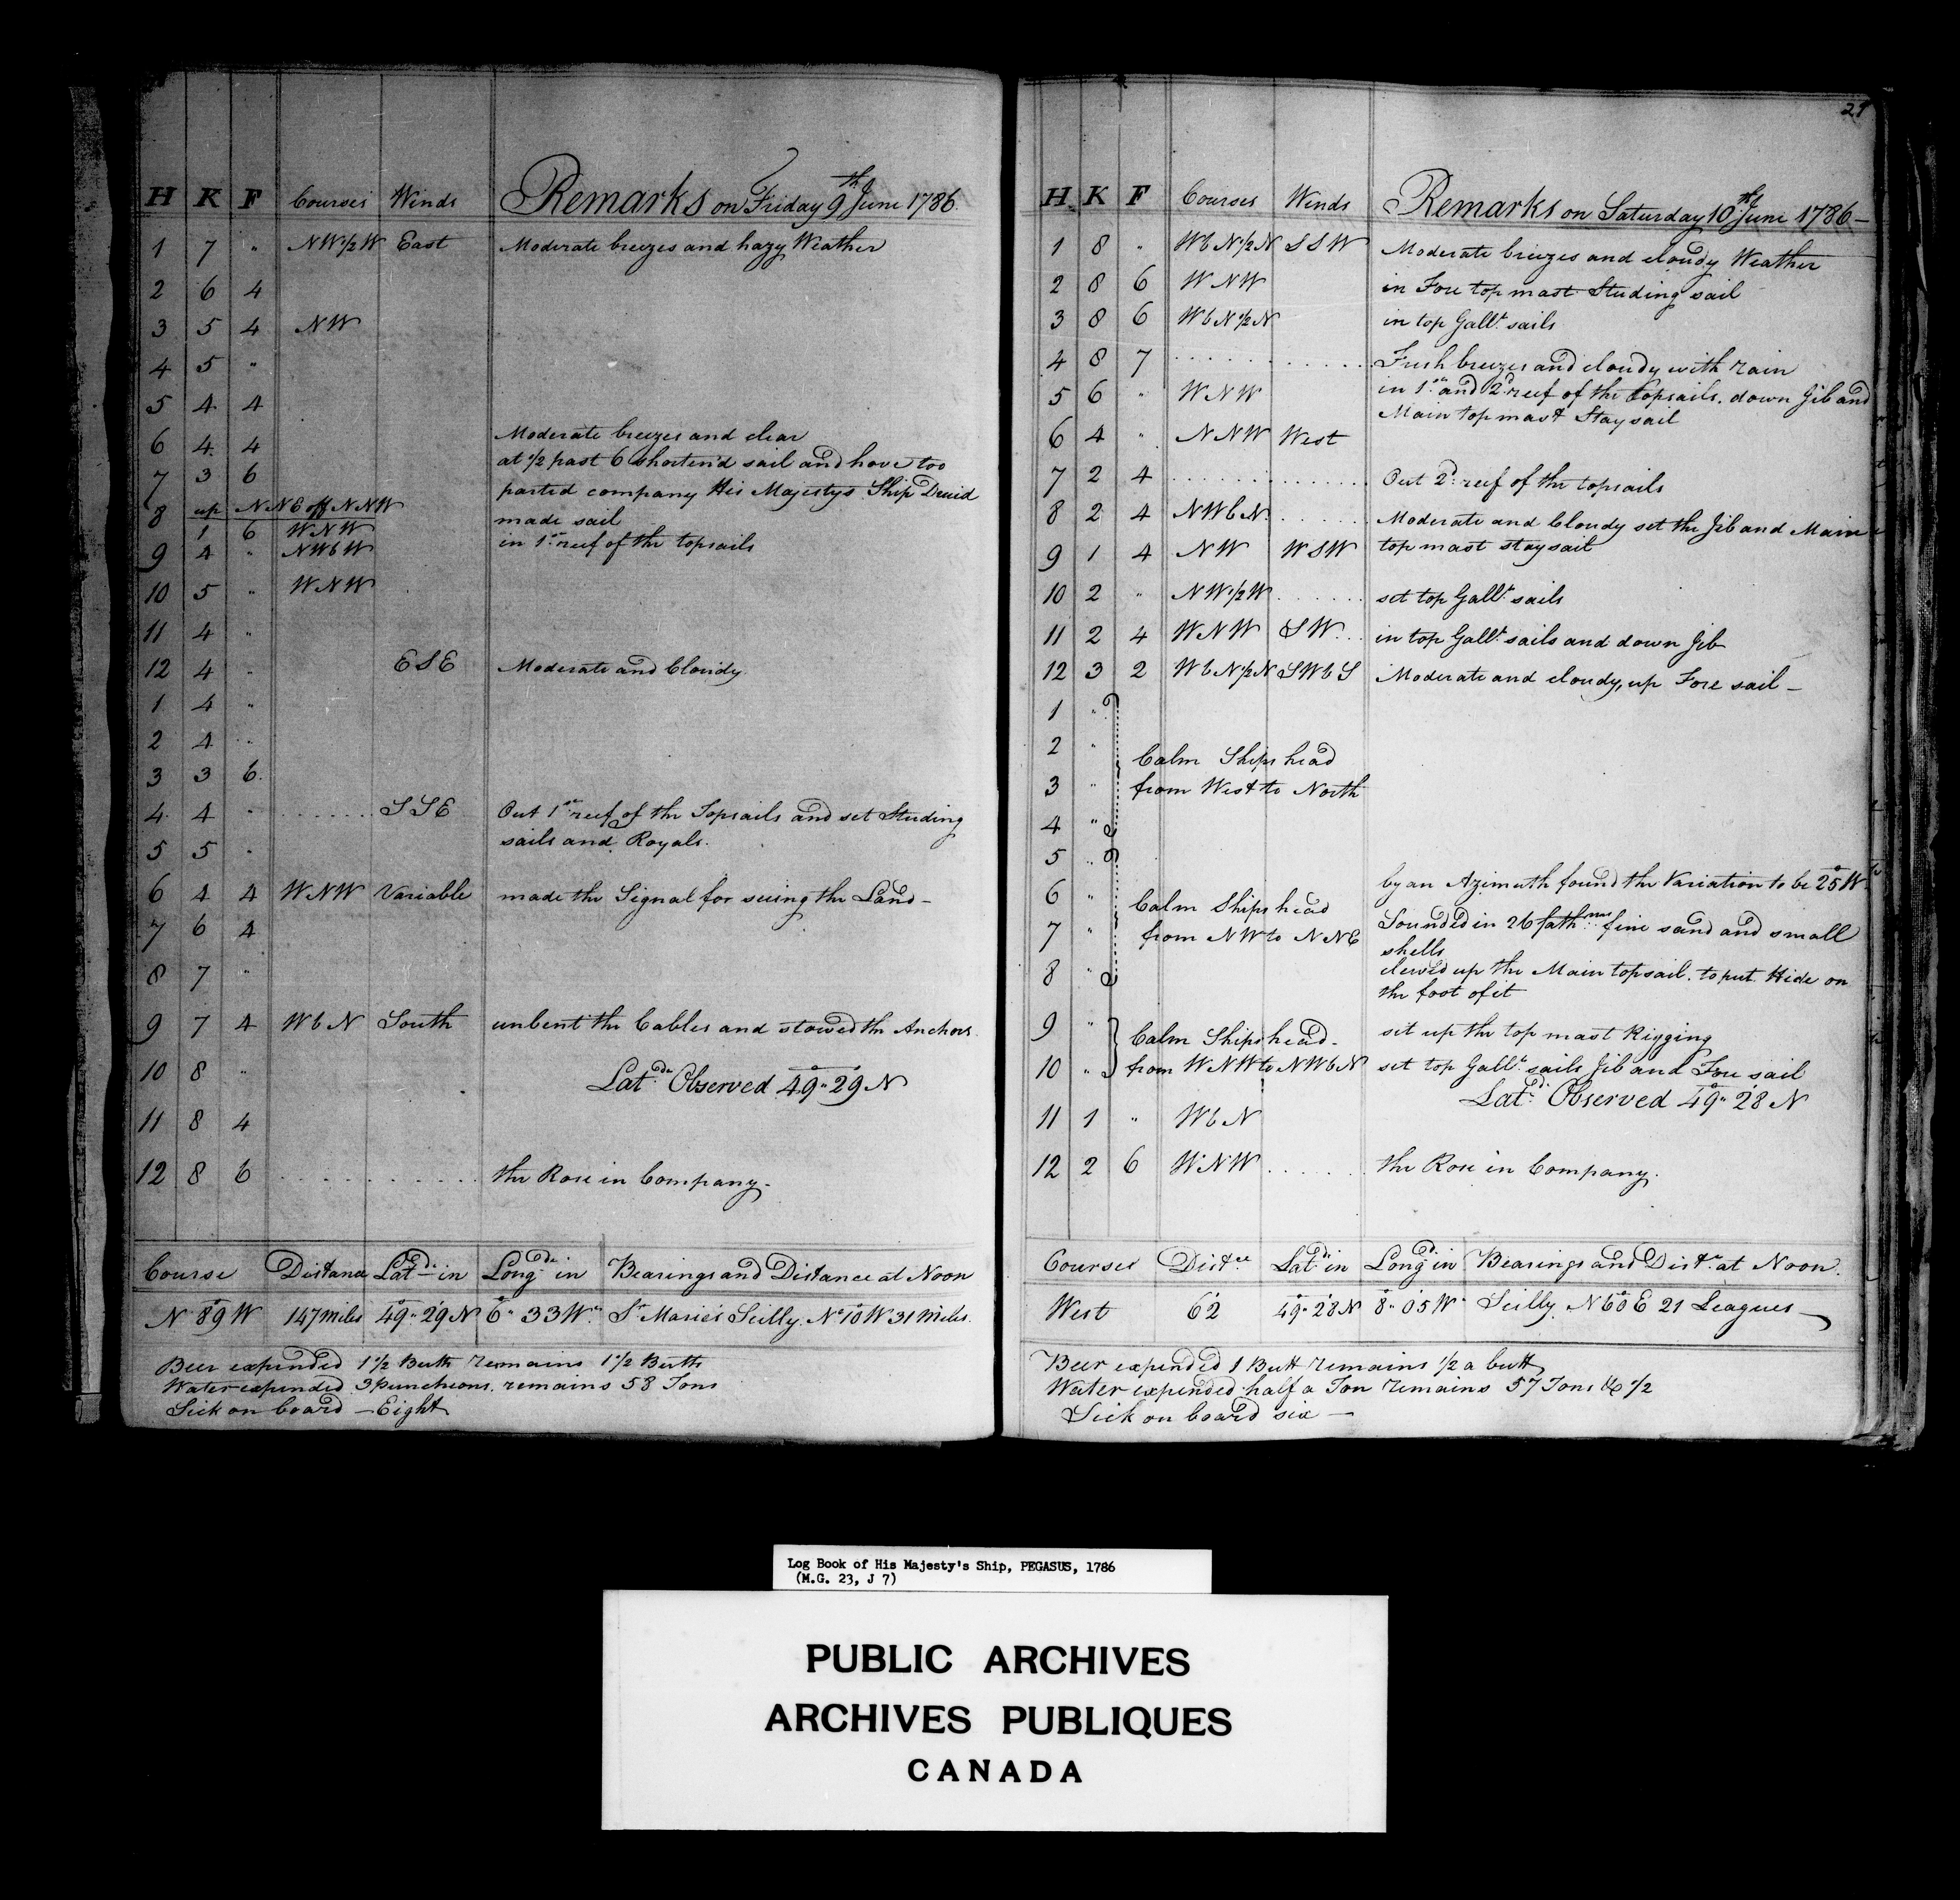 H K F Courses Winds Remarks on Friday 9th June 1786.
1 7 " NW1/2W East Moderate breezes and hazy Weather
2 6 4
3 5 4 NW
4 5 "
5 4 4
6 4 4 Moderate breezes and clear
at 1/2 past 6 shorten'd sail and hove too
7 3 6
parted company His Majestys Ship Druid
8 up NNE off NNW
made sail
1 6 WNW
in 1st reef of the topsails
9 4 " NWbW
10 5 " WNW
11 4 "
12 4 " ESE Moderate and Cloudy
1 4 "
2 4 "
3 3 6
4 4 " SSE Out 1st reef of the Topsails and set Studing
sails and Royals.
5 5 "
6 4 4 WNW Variable made the Signal for seeing the Land -
7 6 4
8 7 "
9 7 4 WbN South unbent the Cables and stowed the Anchors
10 8 "
Latde Observed 49°" 29' N
11 8 4
12 8 6 the Rose in Company.
Course Distance Latde in Longde in Bearings and Distance at Noon
N 89° W 147 miles 49°" 29' N 6°" 33 W. St Maries Scilly. No 10° W 31 Miles.
Beer expended 1 1/2 Butts remains 1 1/2 Butts
Water expended 3 Puncheons. remains 58 Tons
Sick on board - Eight
29
H K F Courses Winds Remarks on Saturday 10th June 1786 -
1 8 " WbN1/2N SSW Moderate breezes and cloudy Weather
2 8 6 WNW in Fore top mast Studing sail
3 8 6 WbN1/2N in top Gallt sails
4 8 7 Fresh breezes and cloudy with rain
5 6 " WNW in 1st and 2d reef of the topsails. down Jib and
Main top mast Stay sail
6 4 " NNW West
7 2 4 Out 2d reef of the topsails
8 2 4 NWbN. Moderate and Cloudy set the Jib and Main
9 1 4 NW WSW top mast stay sail
10 2 " NW1/2W set top Gallt sails
11 2 4 WNW SW in top Gallt sails and down Jib
12 3 2 WbN1/2N SWbS Moderate and cloudy, up Fore sail -
1 "
2 "
Calm Ships head
3 " from West to North
4 "
5 "
by an Azimuth found the Variation to be 25° W.
6 "
Calm Ships head
Sounded in 26 fathms fine sand and small
7 " from NW to NNE
shells
8 " clewed up the Main topsail. to put Hide on
the foot of it
9 " set up the top mast Rigging
Calm Ships head -
10 " from WNW to NWbN set top Gallt sails Jib and Fore sail
Latde Observed 49°" 28' N
11 1 " WbN
12 2 6 WNW the Rose in Company.
Courses Distce Latde in Longd in Bearings and Distce at Noon.
West 62' 49°" 28' N 8°" 05' W Scilly. N 60° E 21 Leagues
Beer expended 1 Butt remains 1/2 a butt
Water expended half a Ton remains 57 Tons & 1/2
Sick on board six -
Log Book of His Majesty's Ship, PEGASUS, 1786
(M.G. 23, J 7)
PUBLIC ARCHIVES
ARCHIVES PUBLIQUES
CANADA